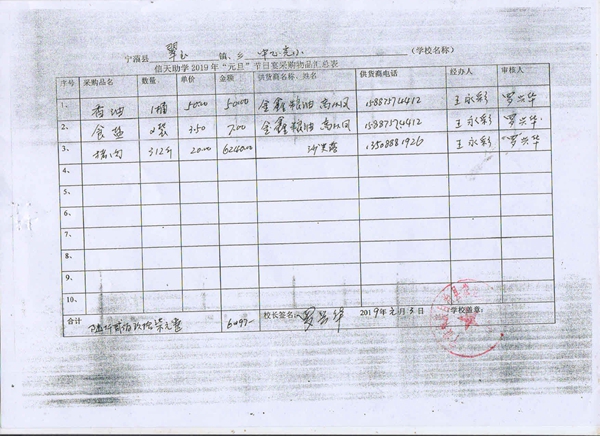 宁蒗县 翠玉 镇、乡 完小 (学校名称)
信天助学2019年“元旦”节日宴采购物品汇总表
序号 采购品名 数量 单价 金额 供货商名称、姓名 供货商电话 经办人 审核人
1、 香油 1桶 50.00 50.00 金鑫粮油 15887574412 王永彩 罗兴华
2、 食盐 2袋 3.50 7.00 金鑫粮油 15887574412 王永彩 罗兴华
3、 猪肉 312斤 20.00 6240.00 13508881926 王永彩 罗兴华
4、
5、
6、
7、
8、
9、
10、
合计 陆仟贰佰玖拾柒元整 6297- 校长签名: 罗兴华 2019年元月3日 学校盖章: